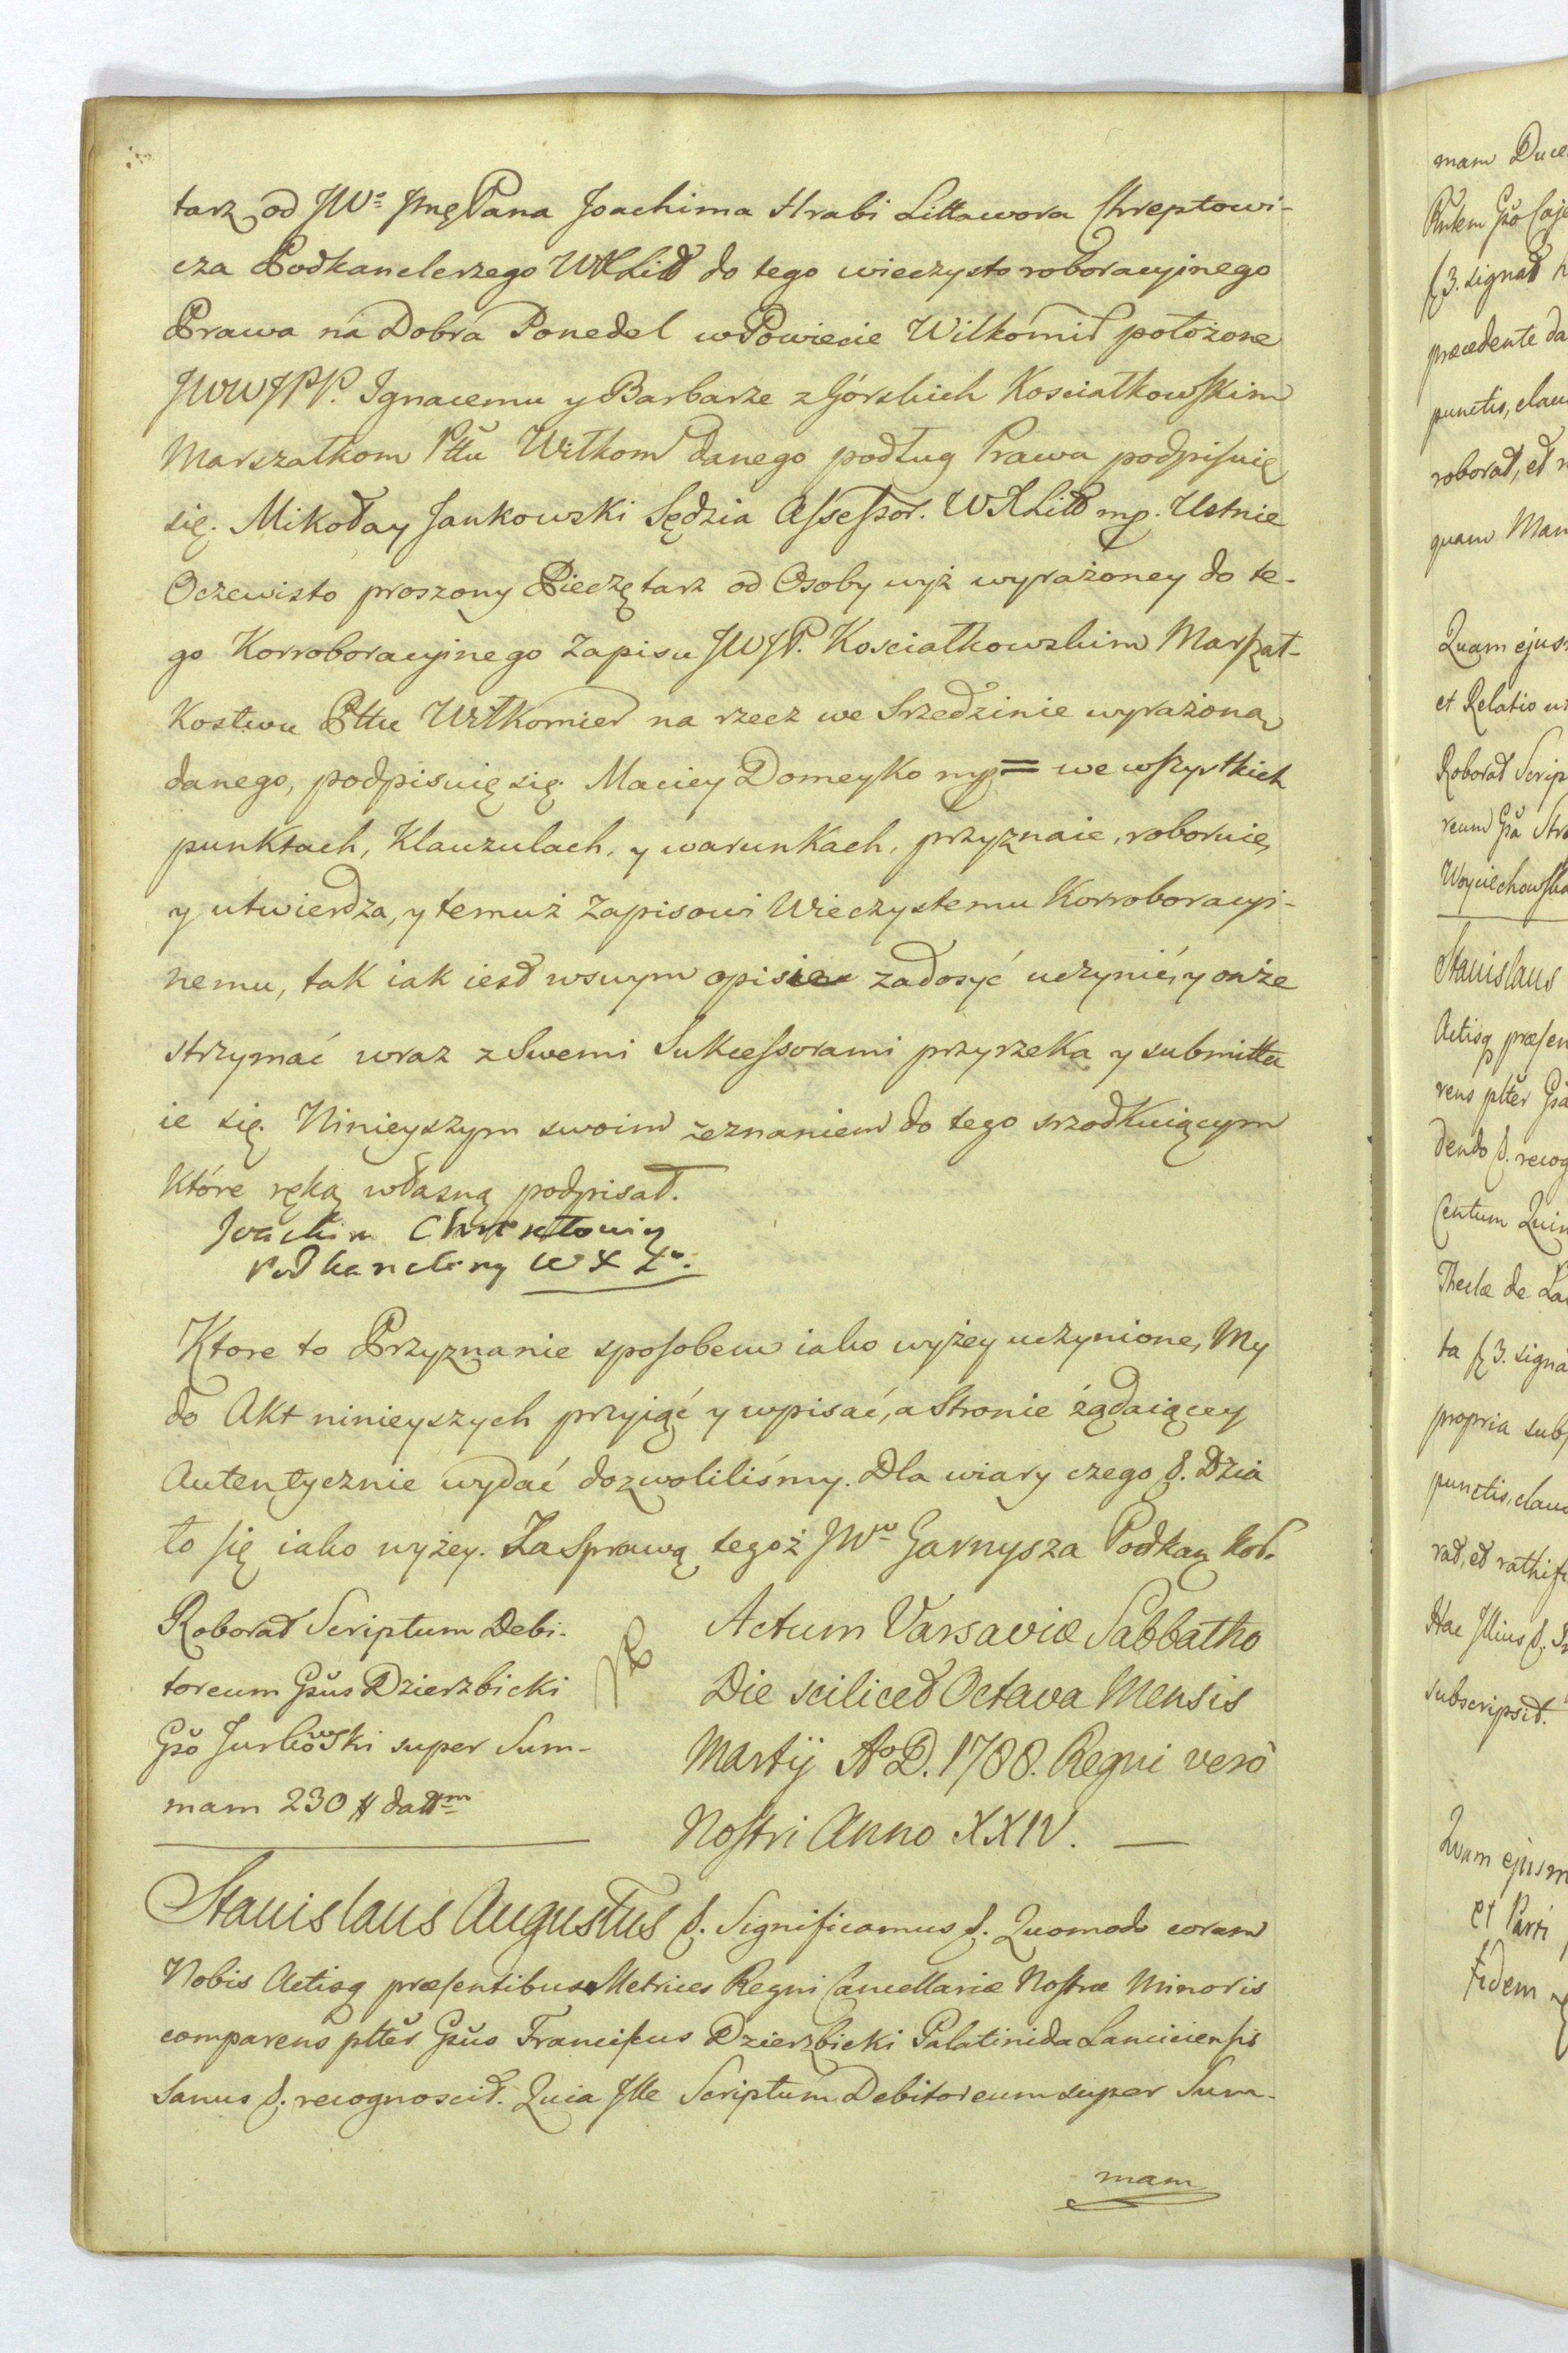 tarz od JWo Jmę Pana Joachima Hrabi Littawora Chreptowi-
cza Podkanclerzego WXLitt do tego wieczysto roboracyjnego
Prawa na Dobra Ponedel w Powiecie Wilkomir położone
JWWJPP. Ignacemu y Barbarze z Górskich Kosciałkowskim
Marszałkom Pttu Wiłkom danego podług Prawa podpisuię
się. Mikołay Jankowski Sędzia Assessor. WXLitt mp. Ustnie
Oczewisto proszony Pieczętarz od Osoby wyż wyrażoney do te-
go Korroboracyinego Zapisu JWJP. Kosciałkowskim Marszał-
Kostwu Pttu Wiłkomier na rzecz we Srzedzinie wyrażoną
danego, podpisuię się. Maciey Domeyko mp = we wszystkich
punktach, Klauzulach, y warunkach, przyznaie, roboruie,
y utwierdza, y temuż Zapisowi Wieczystemu Korroboracyi-
nemu, tak iak iest wswym opisie zadosyć uczynić, y onże
strzymać wraz z Swemi Sukcessorami przyrzeka y submittu
ie się. Ninieyszym swoim zeznaniem do tego srzodkuiącym
Które ręką własną podpisał.
Joachim Chreptowicz
Podkanclerzy W X L.
Ktore to Przyznanie sposobem iako wyżey uczynione, My
do Akt ninieyszych przyiąć y wypisać, a Stronie żądaiącey
Autentycznie wydać dozwoliliśmy. Dla wiary czego &. Dzia
ło się iako wyżey. Za Sprawą tegoż JWo Garnysza Podkan Kor.
Roborat Scriptum Debi-
toreum Gsus Dzierzbicki
Gso Jurkowski super Sum-
mam 230 # dattm
Actum Varsaviæ Sabbatho
Die scilicet Octava Mensis
Martij AoD. 1788. Regni verò
Nostri Anno XXIV. —
Stanislaus Augustus &. Significamus &. Quomodo coram
Nobis Actisq præsentibus Metrices Regni Cancellariæ Nostræ Minoris
comparens pltĕr Gsus Franciscus Dzierzbicki Palatinida Lanciciensis
Sanus &. recognoscit. Quia Ille Scriptum Debitoreum super Sum-
mam
mam
præcedente
roborat, et
quam
Quam ejus
et Relatio
Roborat Scrip
Stanislaus
Actisq præsen
rens pltĕr
dendo &. recog
Centum Quin
Theclæ de
ta # 3. signa
propria sub
punctis, clau
rat, et
subscripsit.
Quam ejusm
et Parti
Fidem